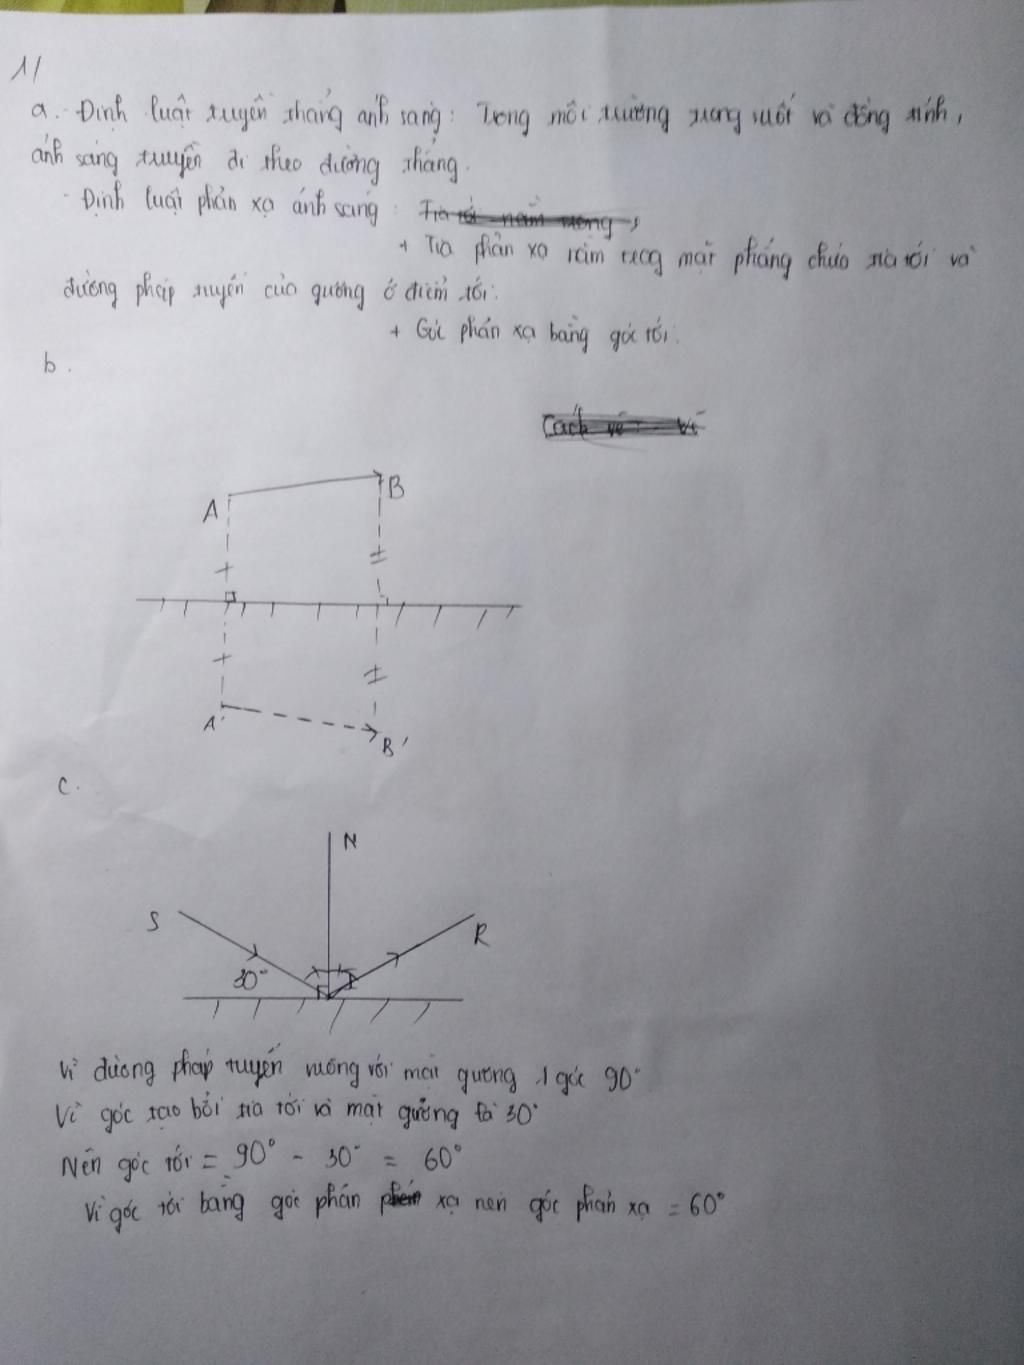 1/
a. - Định luật truyền thẳng ánh sáng: Trong môi trường trong suốt và đồng tính,
ánh sáng truyền đi theo đường thẳng.
- Định luật phản xạ ánh sáng: Tia tới nằm trong
+ Tia phản xạ nằm trong mặt phẳng chứa tia tới và
đường pháp tuyến của gương ở điểm tới.
+ Góc phản xạ bằng góc tới.
b.
Cách vẽ
A B
A' B'
c.
N
S R
30° I
Vì đường pháp tuyến vuông với mặt gương 1 góc 90°
Vì góc tạo bởi tia tới và mặt gương là 30°
Nên góc tới = 90° - 30° = 60°
Vì góc tới bằng góc phản xạ nên góc phản xạ = 60°